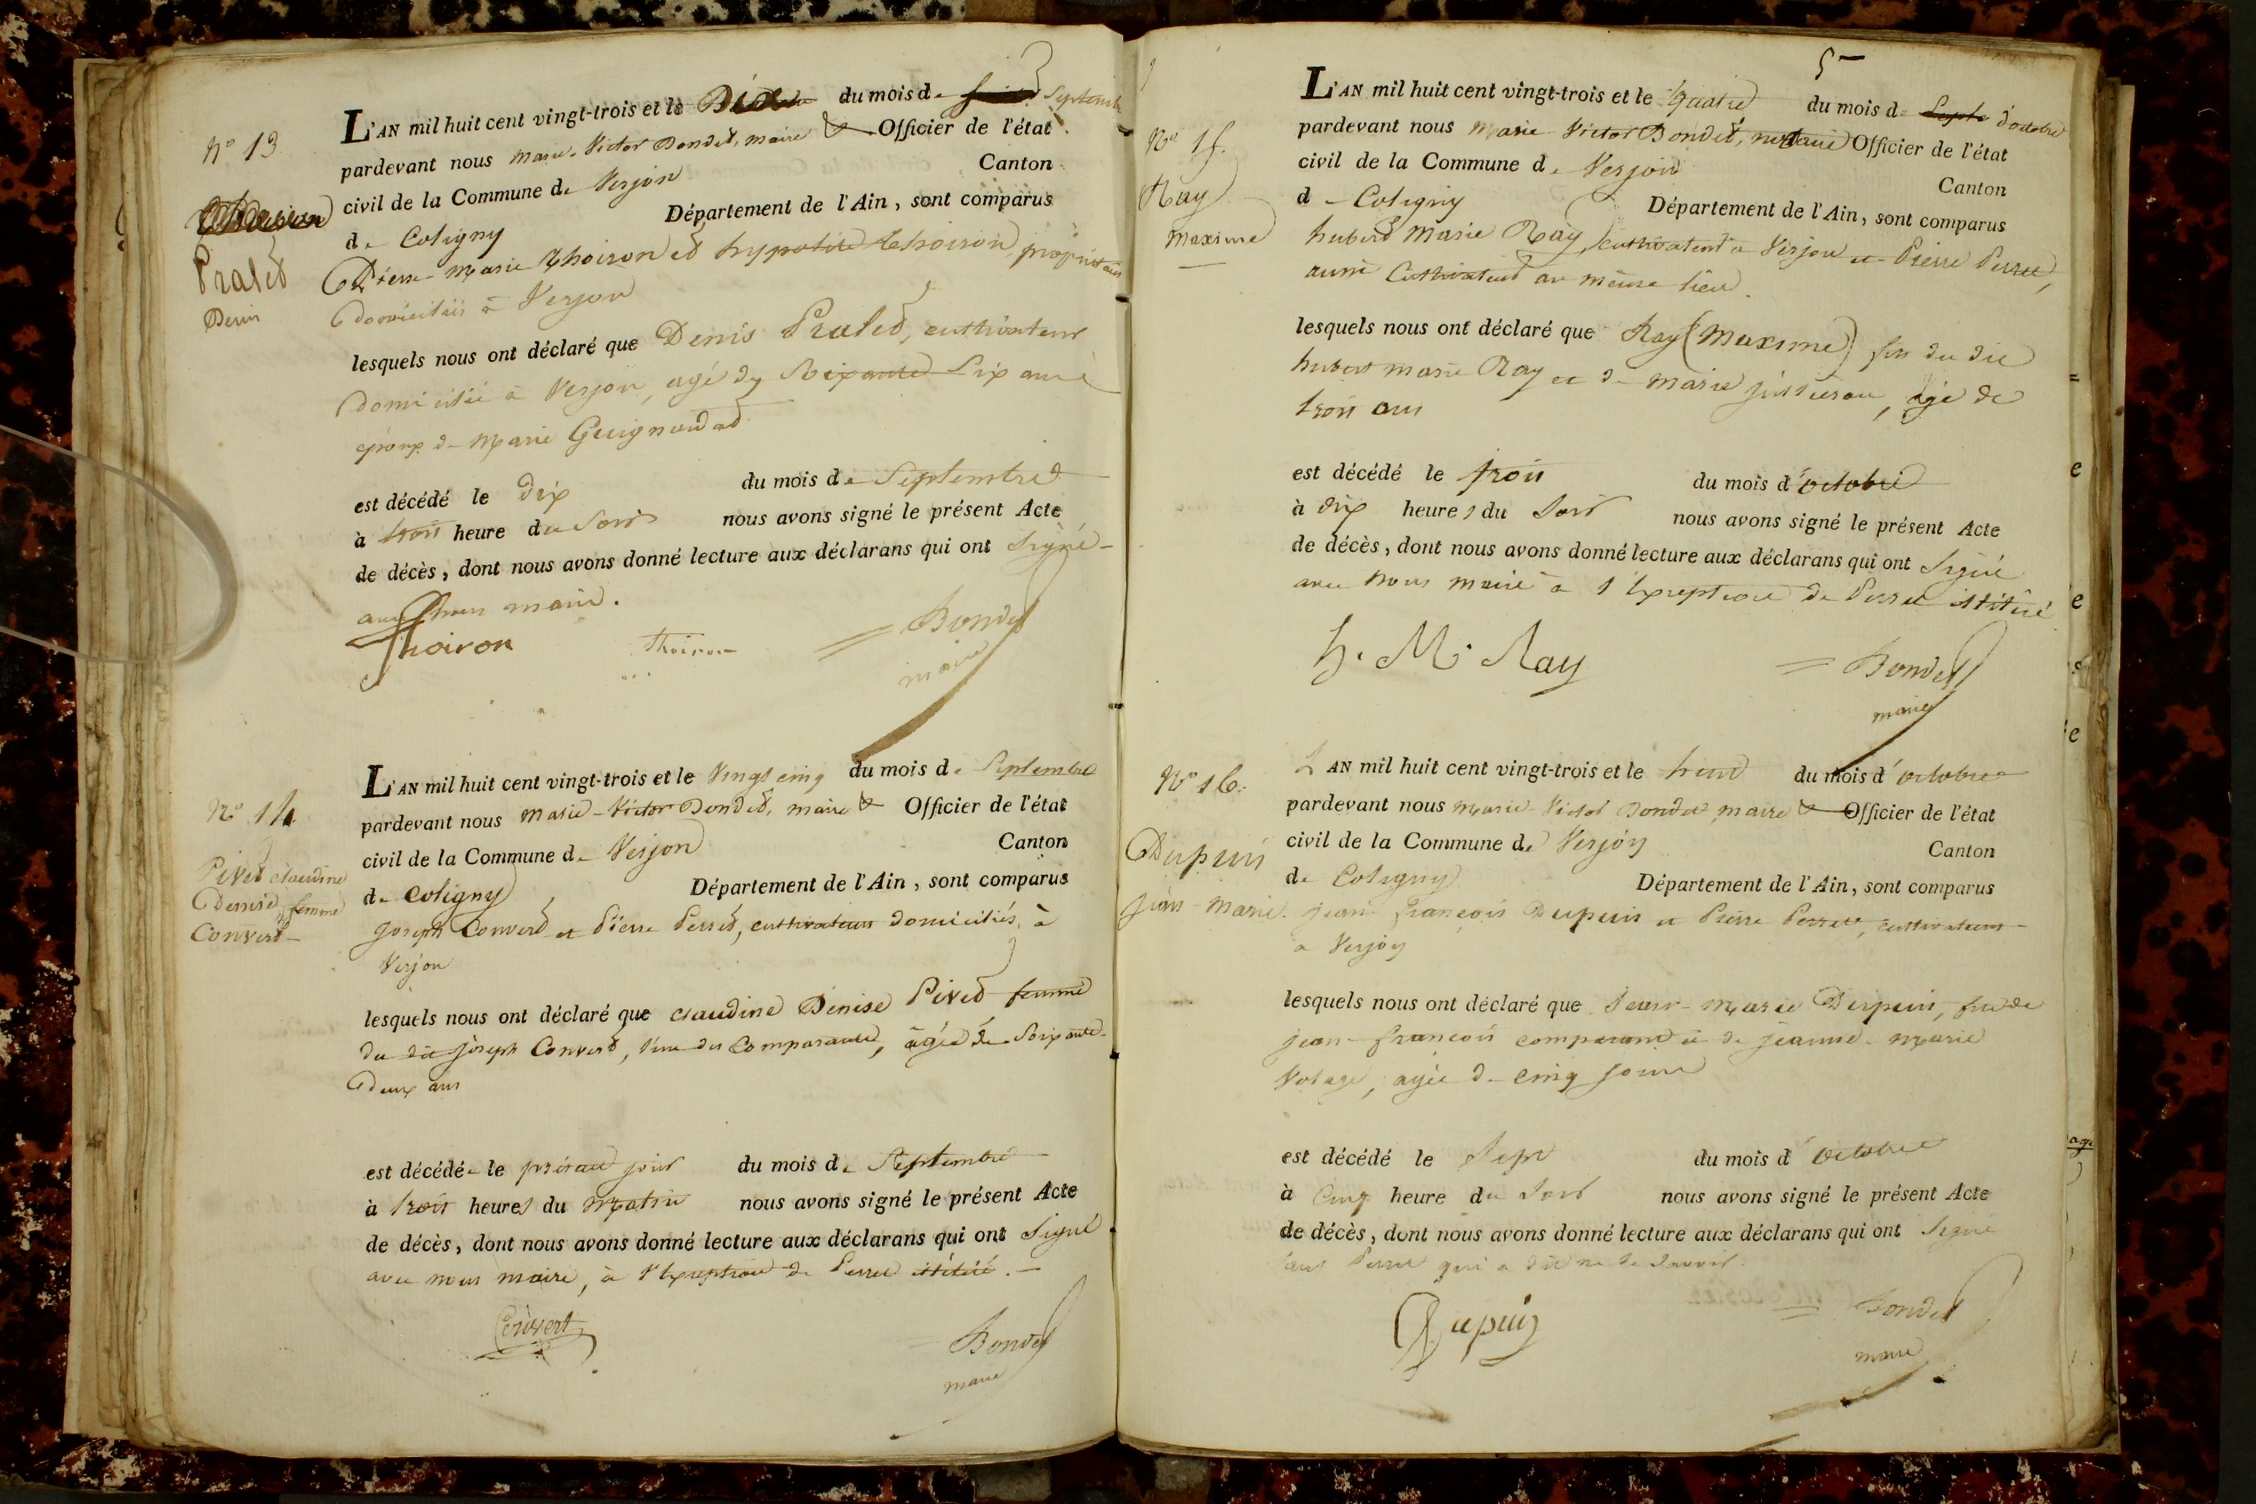 N° 13
Pralet
Denis
L'AN mil huit cent vingt-trois et le Dix du mois de Septembre
pardevant nous Marie-Victor Bondet, maire & Officier de l'état
civil de la Commune de Verjon Canton
de Coligny Département de l'Ain, sont comparus
Pierre-Marie Thoiron et hypolite Thoiron, propriétaires
Domiciliés à Verjon
lesquels nous ont déclaré que Denis Pralet, cultivateur
domicilié à Verjon, agé de Soixante Six ans
époux de Marie Guignardat
est décédé le dix du mois de Septembre
à trois heure du Soir nous avons signé le présent Acte
de décès, dont nous avons donné lecture aux déclarans qui ont Signé
avec nous maire.
Thoiron Thoiron Bondet
maire
N° 14
Pivet claudine
Denise femme
Convert
L'AN mil huit cent vingt-trois et le Vingt cinq du mois de Septembre
pardevant nous Marie-Victor Bondet, maire & Officier de l'état
civil de la Commune de Verjon Canton
de Coligny Département de l'Ain, sont comparus
Joseph Convert et Pierre Perret, cultivateurs domiciliés à
Verjon
lesquels nous ont déclaré que claudine Denise Pivet femme
du dit Joseph Convert, l'un des Comparants, agée de Soixante-
Deux ans
est décédée le présent jour du mois de Septembre
à trois heures du Matin nous avons signé le présent Acte
de décès, dont nous avons donné lecture aux déclarans qui ont Signé
avec nous maire, à l'Exception de Perret illitéré.
Convert Bondet
maire
5
N° 15.
Ray
Maxime
L'AN mil huit cent vingt-trois et le quatre du mois d'octobre
pardevant nous Marie Victor Bondet, maire Officier de l'état
civil de la Commune de Verjon Canton
de Coligny Département de l'Ain, sont comparus
hubert Marie Ray, cultivateur à Verjon et Pierre Perret,
aussi Cultivateur au même lieu.
lesquels nous ont déclaré que Ray (Maxime) fils du dit
hubert Marie Ray et de Marie, âgé de
trois ans
est décédé le trois du mois d'octobre
à dix heures du Soir nous avons signé le présent Acte
de décès, dont nous avons donné lecture aux déclarans qui ont Signé
avec nous maire à l'Exception de Perret illitéré
h. M. Ray Bondet
maire
N° 16.
Dupuis
Jean-Marie.
L'AN mil huit cent vingt-trois et le huit du mois d'octobre
pardevant nous Marie-Victor Bondet maire & Officier de l'état
civil de la Commune de Verjon Canton
de Coligny Département de l'Ain, sont comparus
Jean François Dupuis et Pierre Perret, cultivateurs
à Verjon
lesquels nous ont déclaré que Jean-Marie Dupuis, fils de
Jean-François comparant et de Jeanne-Marie
Volage, agé de cinq jours
est décédé le Sept du mois d'octobre
à Cinq heure du Soir nous avons signé le présent Acte
de décès, dont nous avons donné lecture aux déclarans qui ont Signé
sauf Perret qui a dit ne le Savoir.
Dupuis Bondet
maire